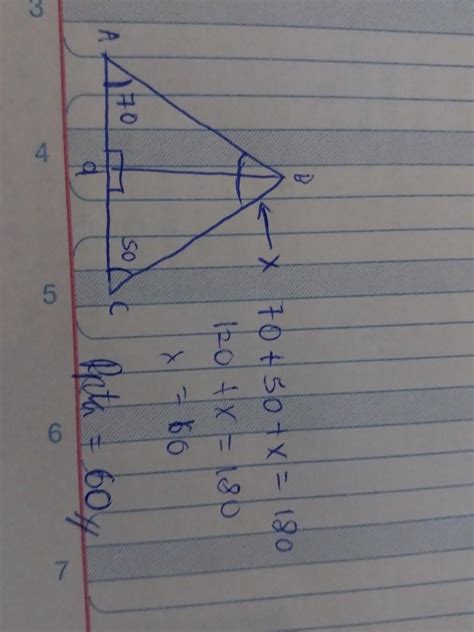 B
X
A 70 50 C
70 + 50 + x = 180
120 + x = 180
x = 60
Rpta = 60//
3
4
5
6
7